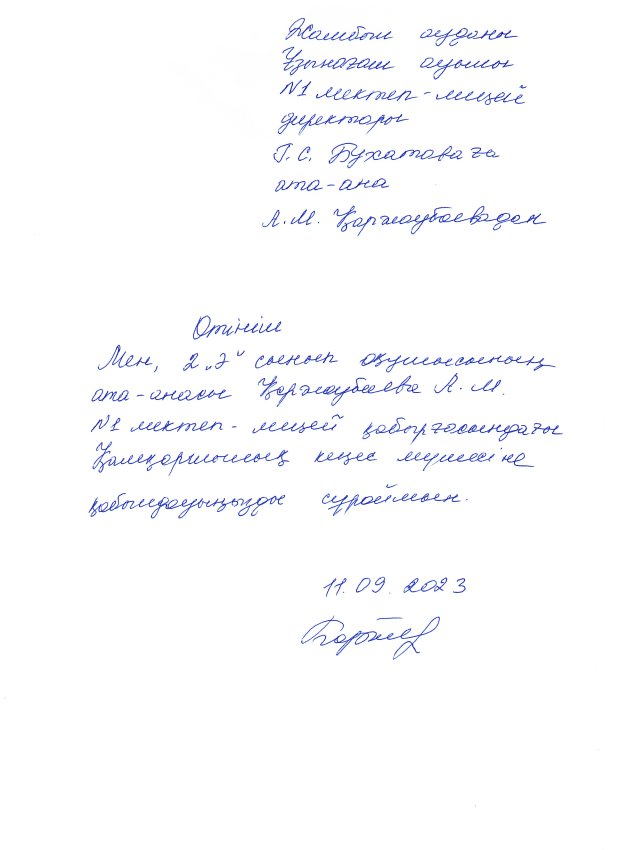 Жамбыл ауданы
Ұзынағаш ауылы
№1 мектеп-лицей
директоры
Г.С. Бухатоваға
ата-ана
А.М. Қаржаубаевадан
Өтініш
Мен, 2 „Ә“ сынып оқушысының
ата-анасы Қаржаубаева А.М.
№1 мектеп-лицей қабырғасындағы
Қамқоршылық кеңес мүшесіне
қабылдауыңызды сұраймын.
11.09.2023